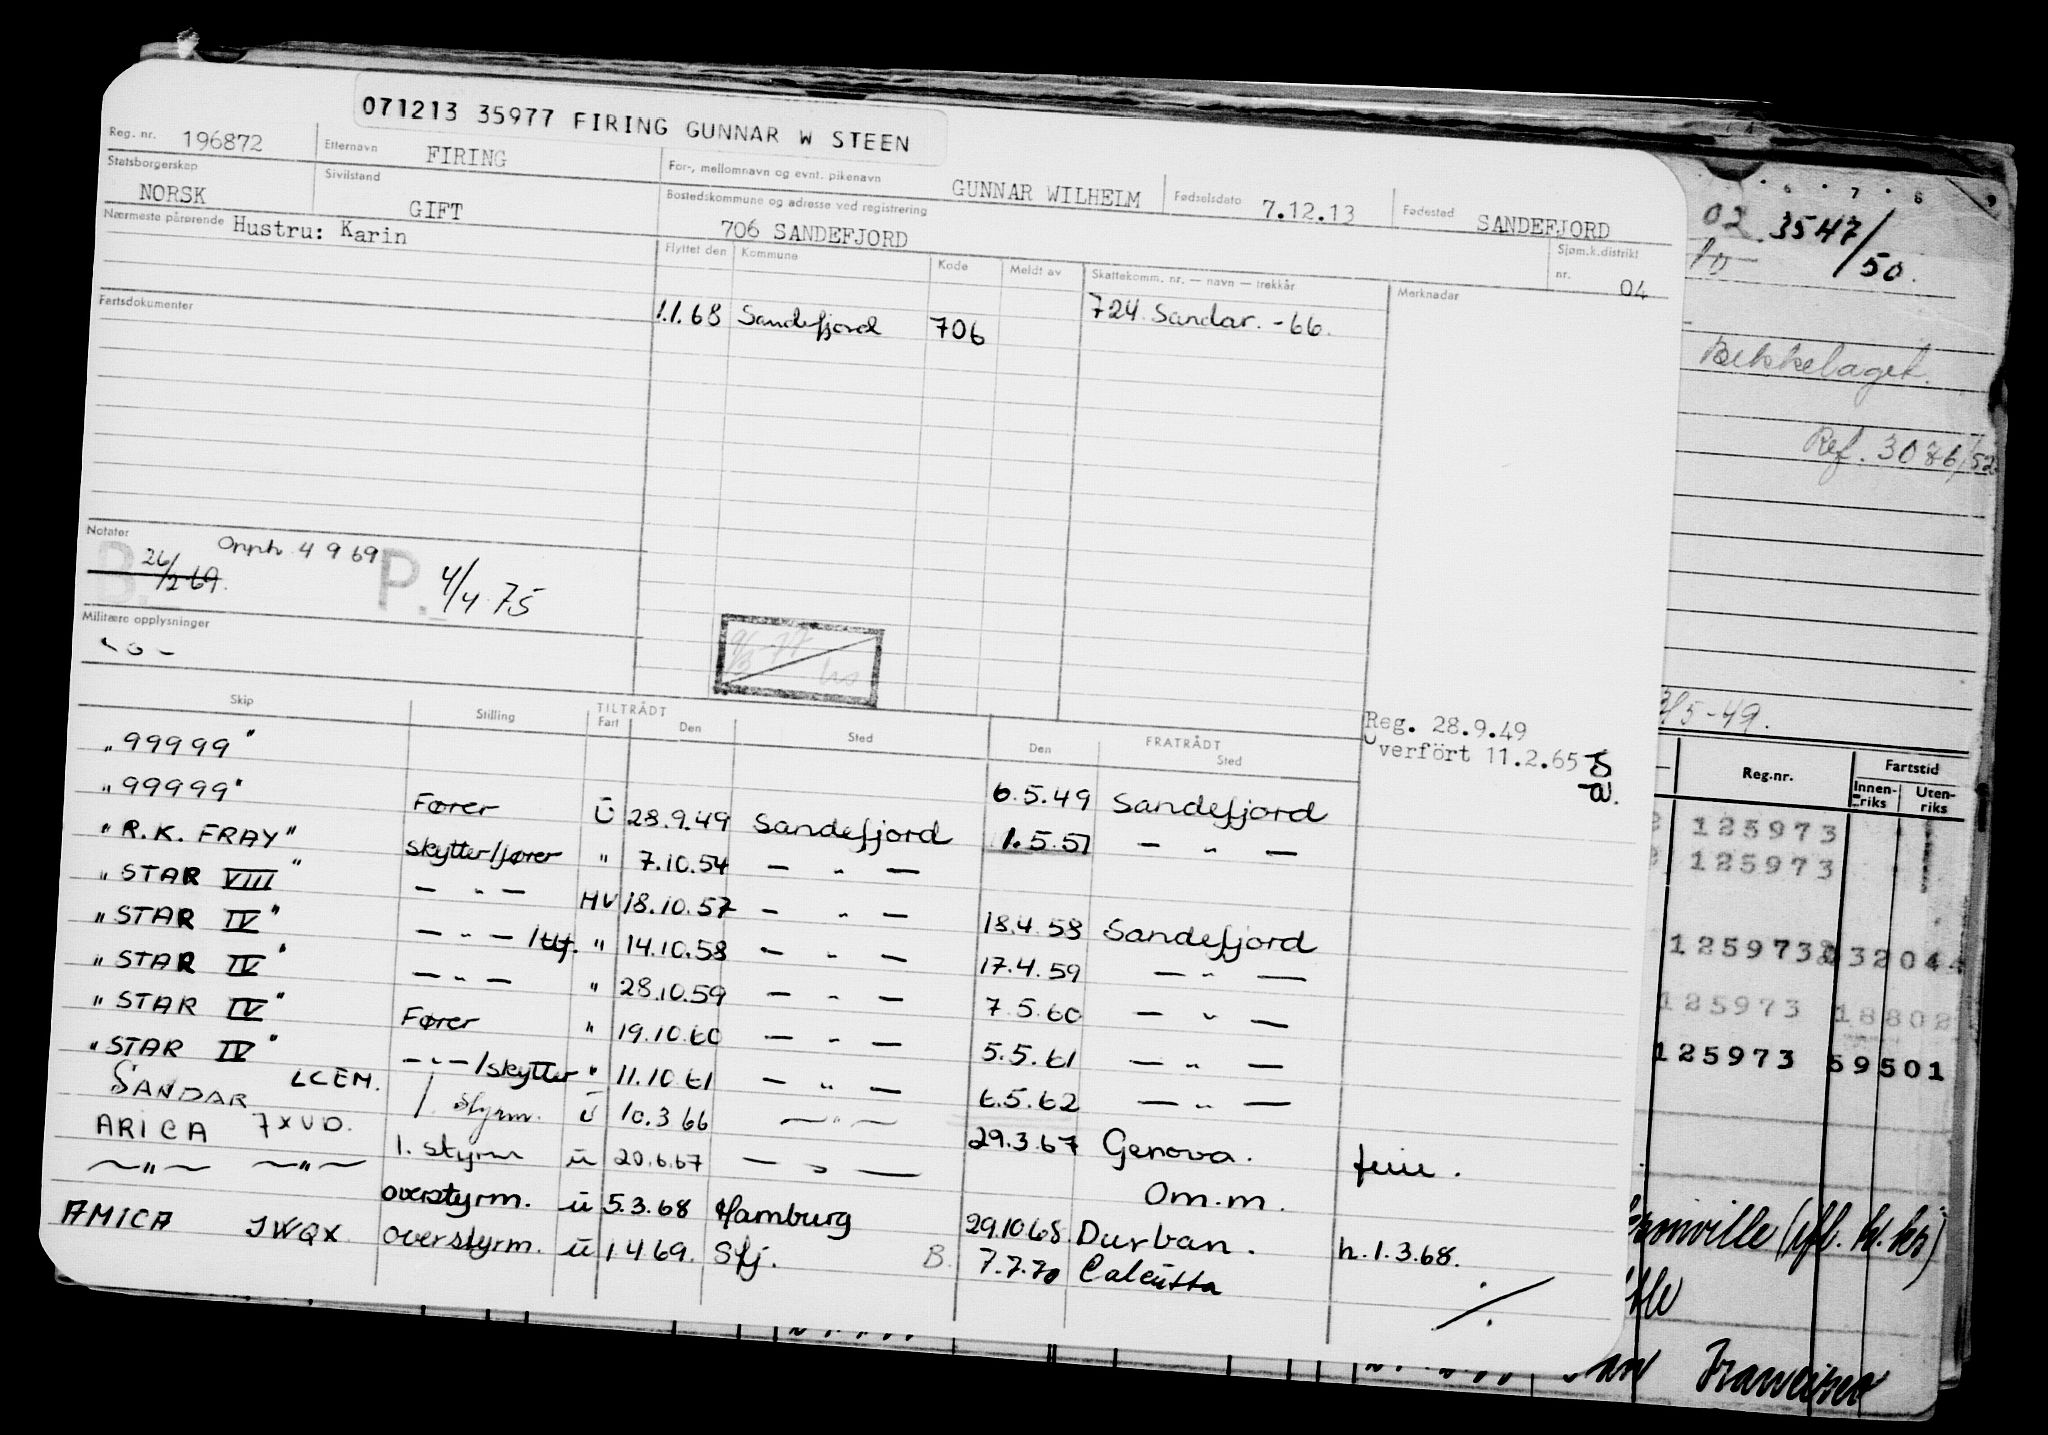 071213 35977 FIRING GUNNAR W STEEN
Reg. nr. 196872 Etternavn FIRING For-, mellomnavn og evnt. pikenavn GUNNAR WILHELM Fødselsdato 7.12.13 Fødested SANDEFJORD
Statsborgerskap NORSK Sivilstand GIFT Bostedskommune og adresse ved registrering 706 SANDEFJORD Sjøm.k.distrikt nr. 04
Nærmeste pårørende Hustru: Karin Flyttet den Kommune Kode Meldt av Skattekomm. nr. — navn — trekkår Merknader
Fartsdokumenter 1.1.68 Sandefjord 706 724 Sandar. -66.
Notater
B. 26/2-69. 4 9 69 P. 4/4 75
Militære opplysninger
Skip Stilling TILTRÅDT Fart Den Sted FRATRÅDT Den Sted
Reg. 28.9.49
Overfört 11.2.65
"99999" 6.5.49 Sandefjord
"99999" Fører U 28.9.49 Sandefjord 1.5.51 — " —
"R.K. FRAY" skytter/fører " 7.10.54 — " —
"STAR VIII" — " — HV 18.10.57 — " — 18.4.58 Sandefjord
"STAR IV" — " — /tlf. " 14.10.58 — " — 17.4.59 — " —
"STAR IV" — " — " 28.10.59 — " — 7.5.60 — " —
"STAR IV" Fører " 19.10.60 — " — 5.5.61 — " —
"STAR IV" — " — /skytter " 11.10 61 — " — 6.5.62 — " —
SANDAR LCEM. 1 styrm. U 10.3 66 — " — 29.3.67 Genova.
ARICA 7XUD. 1. styrm U 20.6.67 — " — Om.m.
— " — — " — overstyrm. U 5.3.68 Hamburg 29.10 68 Durban. h.1.3.68.
AMICA JWQX overstyrm. U 1 4 69. Sfj. B. 7.7.70 Calcutta
6 7 8 9
02. 3547/50.
10
Bekkelaget.
Ref. 3086/52
3/5-49.
Reg.nr. Fartstid
Innen-riks Uten-riks
125973
125973
125973 32044
125973 18802
125973 59501